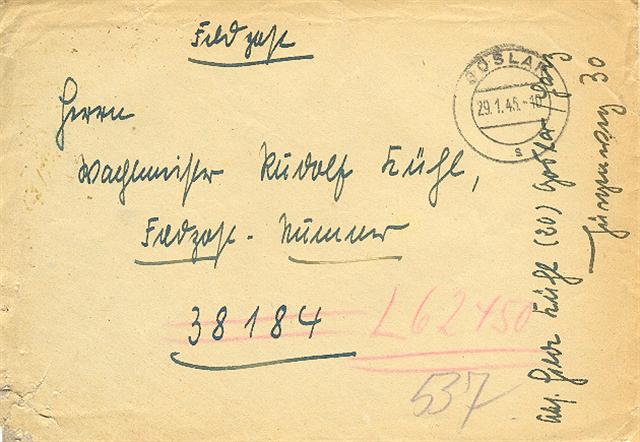 Feldpost
GOSLAR
29.1.45.-
s
Herrn
Wachtmeister Rudolf Kühl,
Feldpost-Nummer
38184
L62450
537
Abs. Kühl (20) Goslar/Harz
30